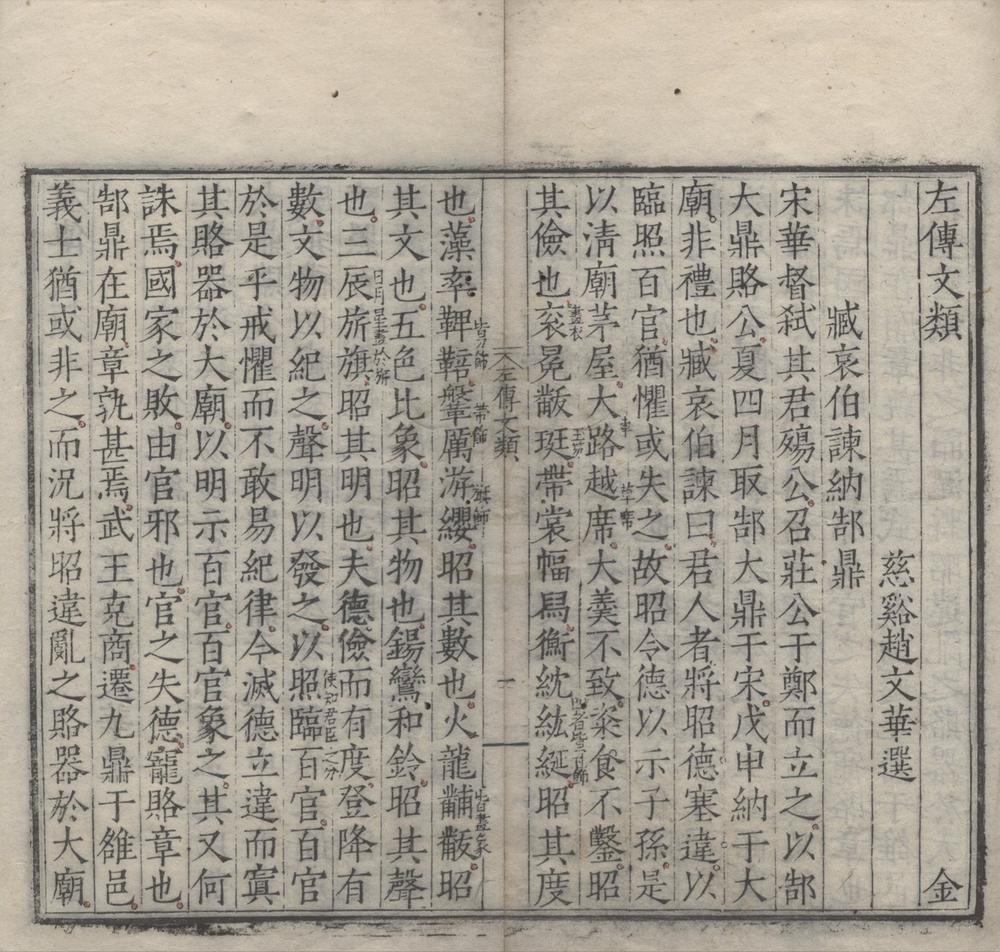 左傳文類 金
慈谿趙文華選
臧哀伯諫納郜鼎
宋華督弒其君殤公召莊公于鄭而立之以郜
大鼎賂公夏四月取郜大鼎于宋戊申納于大
廟非禮也臧哀伯諫曰君人者將昭德塞違以
臨照百官猶懼或失之故昭令德以示子孫是
以清廟茅屋大路越席大羹不致粢食不鑿昭
車
草席
其儉也袞冕黻珽帶裳幅舄衡紞紘綖昭其度
畫衣
玉笏
四者皆首飾
左傳文類
一
也藻率鞞鞛鞶厲游纓昭其數也火龍黼黻昭
皆刀飾
帶飾
旗飾
皆畫象
其文也五色比象昭其物也鍚鸞和鈴昭其聲
也三辰旂旗昭其明也夫德儉而有度登降有
日月星畫於旂
數文物以紀之聲明以發之以照臨百官百官
使知君臣之分
於是乎戒懼而不敢易紀律今滅德立違而寘
其賂器於大廟以明示百官百官象之其又何
誅焉國家之敗由官邪也官之失德寵賂章也
郜鼎在廟章孰甚焉武王克商遷九鼎于雒邑
義士猶或非之而況將昭違亂之賂器於大廟